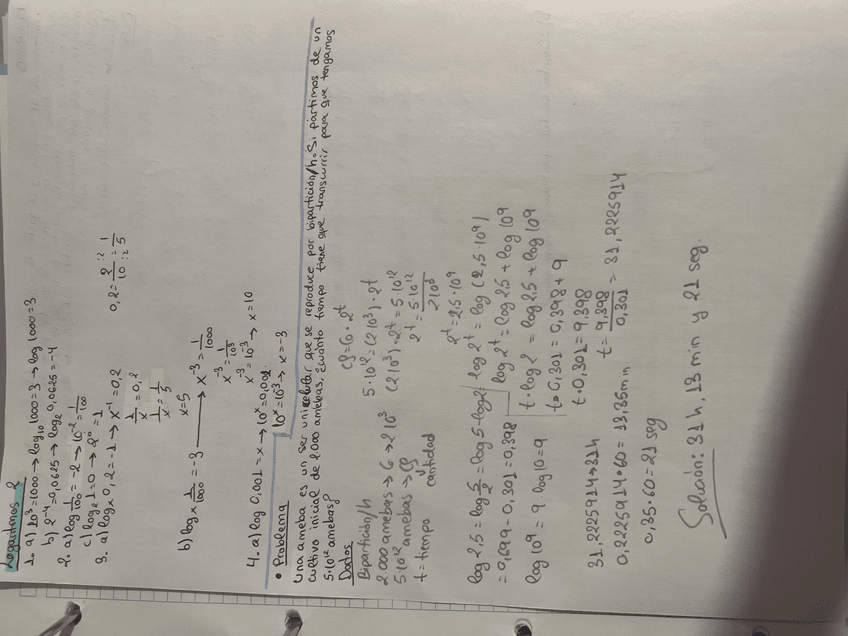 Logaritmos 2
1. a) 10³=1000→log₁₀ 1000=3→log 1000=3
b) 2⁻⁴=0,0625→log₂ 0,0625=-4
2. a) log 1/100=-2→10⁻²=1/100
c) log₂ 1=0→2⁰=1
3. a) logₓ 0,2=-1→x⁻¹=0,2
1/x=0,2
0,2=2/10 :2 :2 =1/5
1/x=1/5
x=5
b) logₓ 1/1000=-3→x⁻³=1/1000
x⁻³=1/10³
x⁻³=10⁻³→x=10
4. a) log 0,001=x→10ˣ=0,001
10ˣ=10⁻³→x=-3
• Problema
Una ameba es un ser unicelular que se reproduce por bipartición/h. Si partimos de un
cultivo inicial de 2000 amebas, ¿cuánto tiempo tiene que transcurrir para que tengamos
5·10¹² amebas?
Datos
Bipartición/h
2.000 amebas→G→2·10³
5·10¹² amebas→Cf
cantidad
t=tiempo
Cf=G·2ᵗ
5·10¹²=(2·10³)·2ᵗ
(2·10³)·2ᵗ=5·10¹²
2ᵗ=5·10¹²/2·10³
2ᵗ=2,5·10⁹
log 2,5=log 5/2=log 5-log 2
=0,699-0,301=0,398
log 10⁹=9·log 10=9
log 2ᵗ=log (2,5·10⁹)
log 2ᵗ=log 2,5+log 10⁹
t·log 2=log 2,5+log 10⁹
t·0,301=0,398+9
t·0,301=9,398
t=9,398/0,301=31,2225914
31,2225914→31h
0,2225914·60=13,35min
0,35·60=21 seg
Solución: 31h, 13 min y 21 seg.